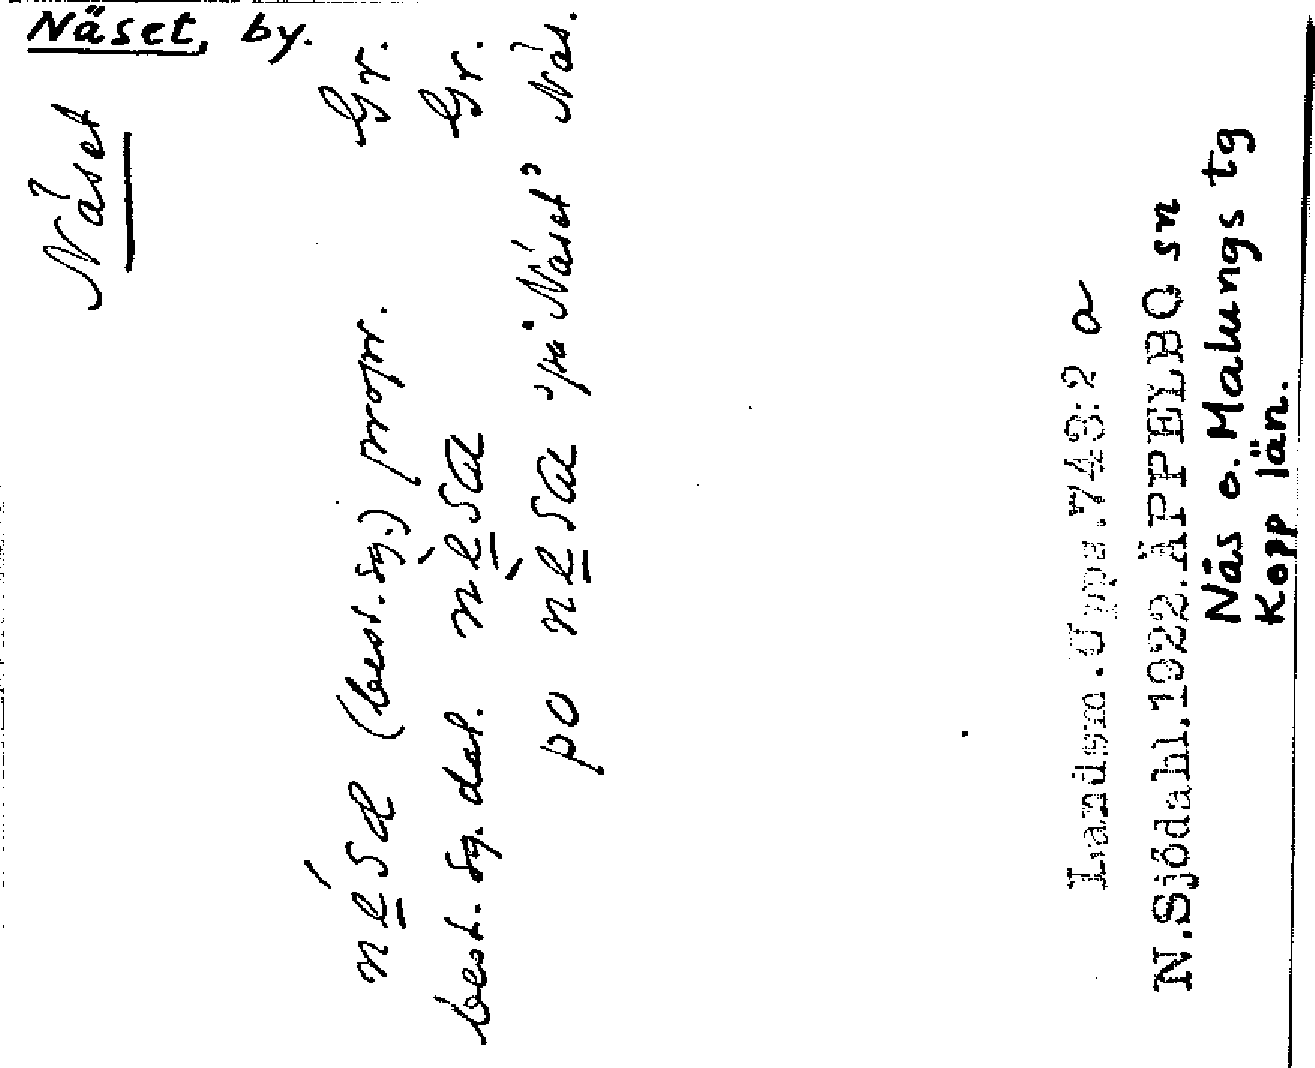 Näset, by.
Näset
nesa (best. sg.) propr. Gr.
best. sg. dat. nesa Gr.
po nesa "på Näset" Näs.
Landsm. Upps. 743:2 a
N.Sjödahl.1922.ÄPPELBO sn
Näs o. Malungs tg
Kopp län.